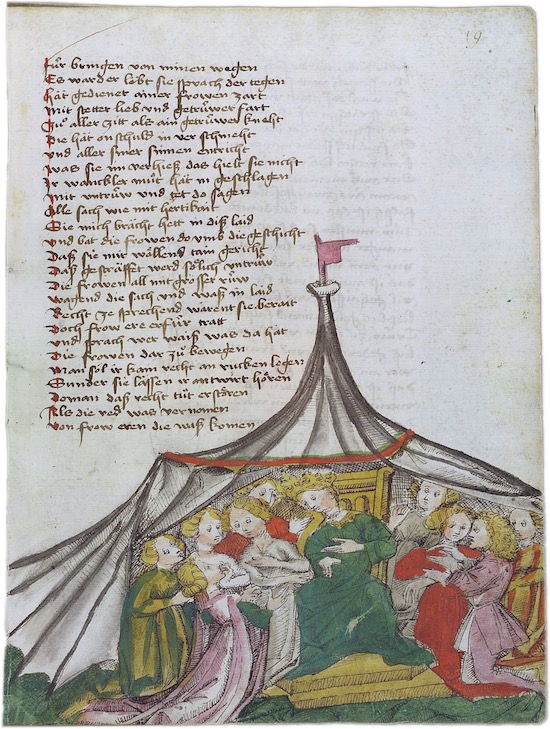 19
für bringen von minen wegen
Es ward er lobt sie sprach der tegen
hät gedienet einer frowen zart
mit stetter lieb vnd getrüwer fart
Zů aller zitt als ain getrüwer kneht
die hät on schuld in ver schmeht
vnd aller siner sinnen entricht
was sie im verhieß das hielt sie nicht
Ir wanckler můt hät in geschlagen
mit vntrüw vnd get do sagen
Alle sach wie mit hertikait
Sie mich bracht hett in diß laid
vnd bat die frowen do vmb die geschicht
Daß sie mit wöllens tain gericht
Daß gesträffet werd sölich vntrüw
Die frowen all mit grosser rüw
wagend die sach vnd waß in laid
Recht ze sprechend warent sie berait
Doch frow ere er für tratt
vnd sprach wer waiß was da hät
Die frowen dar zů bewegen
man sol ir kain recht an rucken legen
Sunder sie lässen ir antwirt hören
Do man daß recht tůt erstören
Als die red was vernomen
von frow eren die waß komen